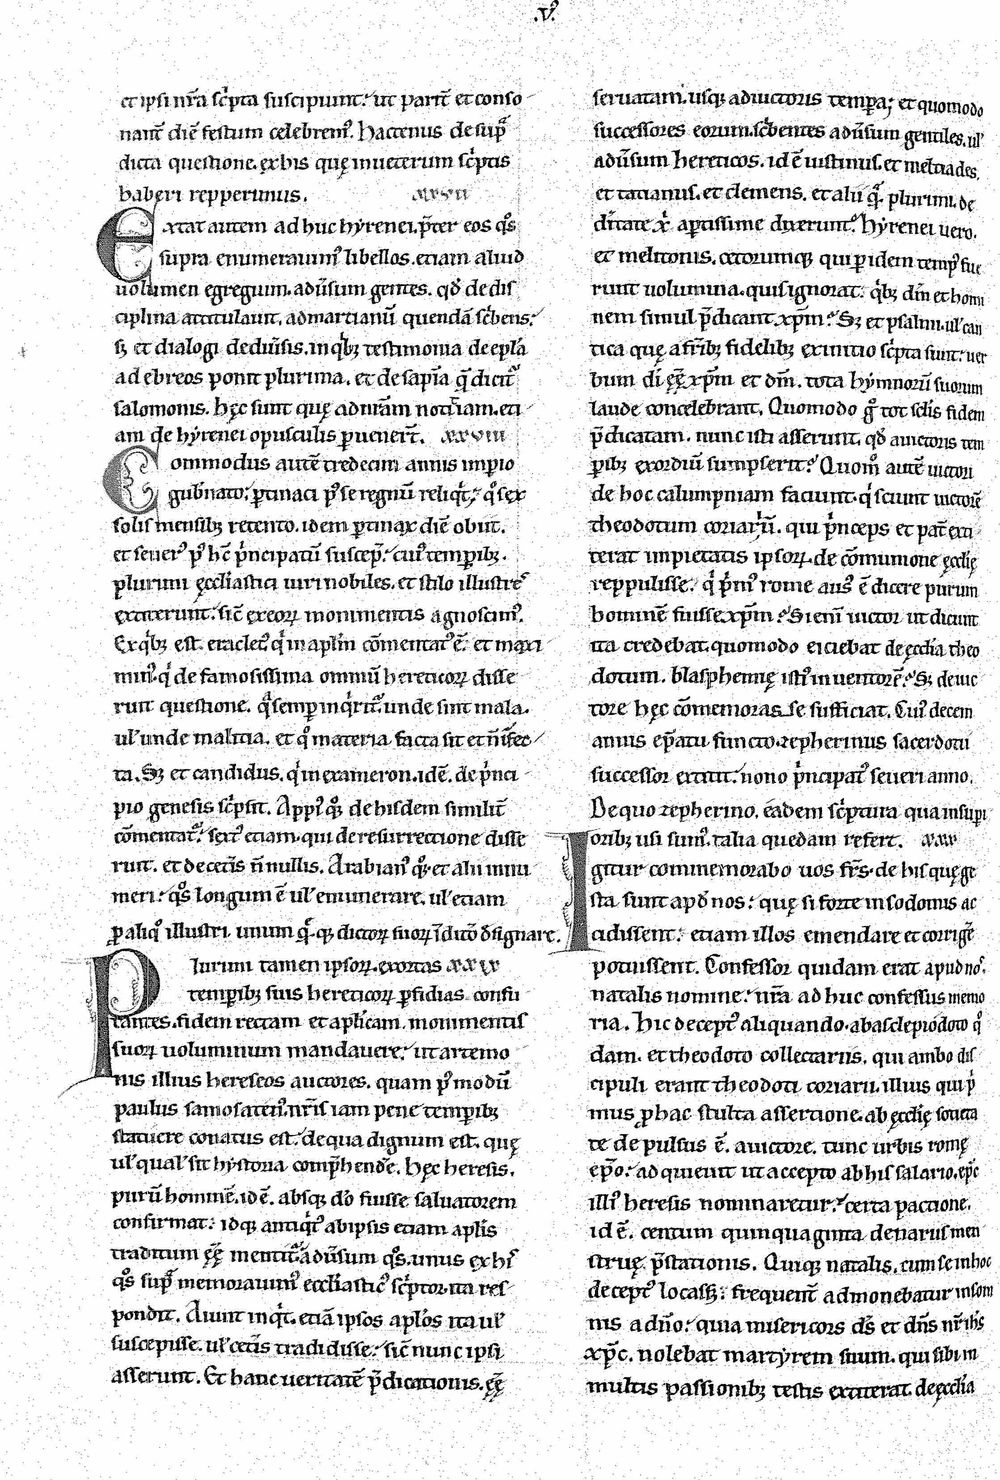 .v.
et ipsi nr̄a sc̄pta suscipiunt. ut parit̄ et conso
nant̄ diē festum celebrem᷒. hactenus de sup̄
dicta questione. ex his quę in ueterum sc̄ptis
haberi repperimus. xxvii
Extat autem ad huc hyrenei. p̄ter eos q̊s
supra enumerauim᷒ libellos. etiam aliud
uolumen egregium. adūsum gentes. qd̄ de dis
ciplina attitulauit. ad martianū quendā sc̄bens.
sꝫ et dialogi de diūsis. in qᵇꝫ testimonia de ep̄la
ad ebreos ponit plurima. et de sapīa q̄ dicit᷒
salomonis. hęc sunt quę ad nr̄am notic̄iam. eti
am de hyrenei opusculis ꝑuener̄t. xxviii
Commodus autē tredecim annis impio
gub̄nato. ꝑtinaci p᷒ se regnū reliq̇t. q̊ sex
solis mensibꝫ retento. idem ꝑtinax diē obiit.
et seuer᷒ p᷒ hc̄ p̄ncipatū suscep̄. cui᷒ temꝑibꝫ.
plurimi ęccl̄iastici uiri nobiles. et stilo illustres
extiterunt. sic̄ ex eoꝝ monimentis agnoscim᷒.
Ex qᵇꝫ est. eraclet᷒ q̇ in apl̄m cōmentat᷒ ē. et maxi
min᷒. q̇ de famosissima omniū hereticoꝝ disse
ruit questione. q̄ semꝑ inq̇rit᷒. unde sint mala.
ul᷒ unde malitia. et q̊ materia facta sit et n̄ infec
ta. Sꝫ et candidus. q̇ in exameron. id ē. de p̄nci
pio genesis sc̄psit. App̄i᷒ q̊ꝫ de hisdem similit̄
cōmentat᷒. sext᷒ etiam. qui de resurrectione disse
ruit. et de cet̄is n̄nullis. Arabian᷒ q̊ꝫ. et alii innu
meri. q̊s longum ē ul᷒ enumerare. ul᷒ etiam
ꝑ aliq᷒ illustri. unum q̄.qꝫ dictoꝝ suoꝝ īditō dsignare.
Plurimi tamen ipsoꝝ. exortas xxix
temꝑibꝫ suis hereticoꝝ ꝑfidias. confu
tantes. fidem rectam et apl̄icam. monimentis
suoꝝ uoluminum mandauere. ut artemo
nis illius hereseos auctores. quam p᷒ modū
paulus samosaten᷒. nr̄is iam pene temꝑibꝫ
statuere conatus est. de qua dignum est. quę
ul᷒ qual᷒ sit hystoria comp̄hende. hęc heresis.
purū hominē. id ē. absqꝫ do᷒ fuisse saluatorem
confirmat. idqꝫ antiq̇t᷒ ab ipsis etiam apl̄is
traditum ēē mentit᷒. adūsum q̊s. unus ex his
q̊s sup̄ memorauim᷒ eccl̄iastic᷒ sc̄ptor. ita res
pondit. Aiunt inq̇t. etiā ipsos apl̄os ita ul᷒
suscepisse. ul᷒ cet̄is tradidisse. sic̄ nunc ipsi
asserunt. Et hanc ueritatē p̄dicationis. ēē
seruatam. usqꝫ ad uictoris tempora; et quomodo
successores eorum. sc̄bentes adūsum gentiles. ul᷒
adūsum hereticos. id ē iustinus. et meltiades.
et tatianus. et clemens. et alii q̄. plurimi. de
di᷒tate xp̄i apertissime dixerunt. hyrenei uero.
et melitonis. cetorumqꝫ qui ꝑ idem temp᷒ fue
runt uolumina. quis ignorat. qᵇꝫ dm̄ et homi
nem simul p̄dicant xp̄m. Sꝫ et psalmi. ul᷒ can
tica quę a fr̄ibꝫ fidelibꝫ ex initio sc̄pta sunt. uer
bum di᷒ ēē xp̄m et dm̄. tota hymnorū suorum
laude concelebrant. Quomodo g̊ tot sc̄lis fidem
p̄dicatam. nunc isti asserunt. qd̄ a uictoris tem
ꝑibꝫ exordiū sumpserit. Quom̊ autē uictori
de hoc calumpniam faciunt. q̇ sciunt uictorē
theodotum coriariū. qui p̄nceps et pat̄ exti
terat impietatis ipsoꝝ. de cōmunione ęccl̄ię
reppulisse. q̇ p̄m᷒ rome aus᷒ ē dicere purum
hominē fuisse xp̄m. Si enī uictor ut dicunt
ita credebat. quomodo eiciebat de ęccl̄ia theo
dotum. blasphemię isti᷒ inuentorē. Sꝫ de uic
tore hęc cōmemorasse sufficiat. Cui᷒ decem
annis ep̄atu functo. zepherinus sacerdotii
successor extitit. nono p̄ncipat᷒ seueri anno.
De quo zepherino. eadem sc̄ptura qua in supi
oribꝫ usi sum᷒. talia quedam refert. xxx
Igitur commemorabo uos fr̄s. de his quę ge
sta sunt apd̄ nos. quę si forte in sodomis ac
cidissent. etiam illos emendare et corrige
potuissent. Confessor quidam erat apud nos.
natalis nomine. nr̄a ad huc confessus memo
ria. hic decept᷒ aliquando. ab asclepiodoto q̊
dam. et theodoto collectariis. qui ambo dis
cipuli erant theodoti coriarii. illius qui p̄
mus ꝓ hac stulta assertione. ab ęccl̄ię societa
te depulsus ē. a uictore. tunc urbis romę
ep̄o. adquieuit ut accepto ab his salario. ep̄c
illi᷒ heresis nominaretur. certa pactione.
id ē. centum quinquaginta denariis men
struę p̄stationis. Quiqꝫ natalis. cum se in hoc
decept᷒ locassꝫ. frequent̄ admonebatur in som
nis a dn̄o. quia misericors ds̄ et dn̄s nr̄ ihs̄
xp̄c. nolebat martyrem suum. qui sibi in
multis passionibꝫ testis extiterat. de ęccl̄ia